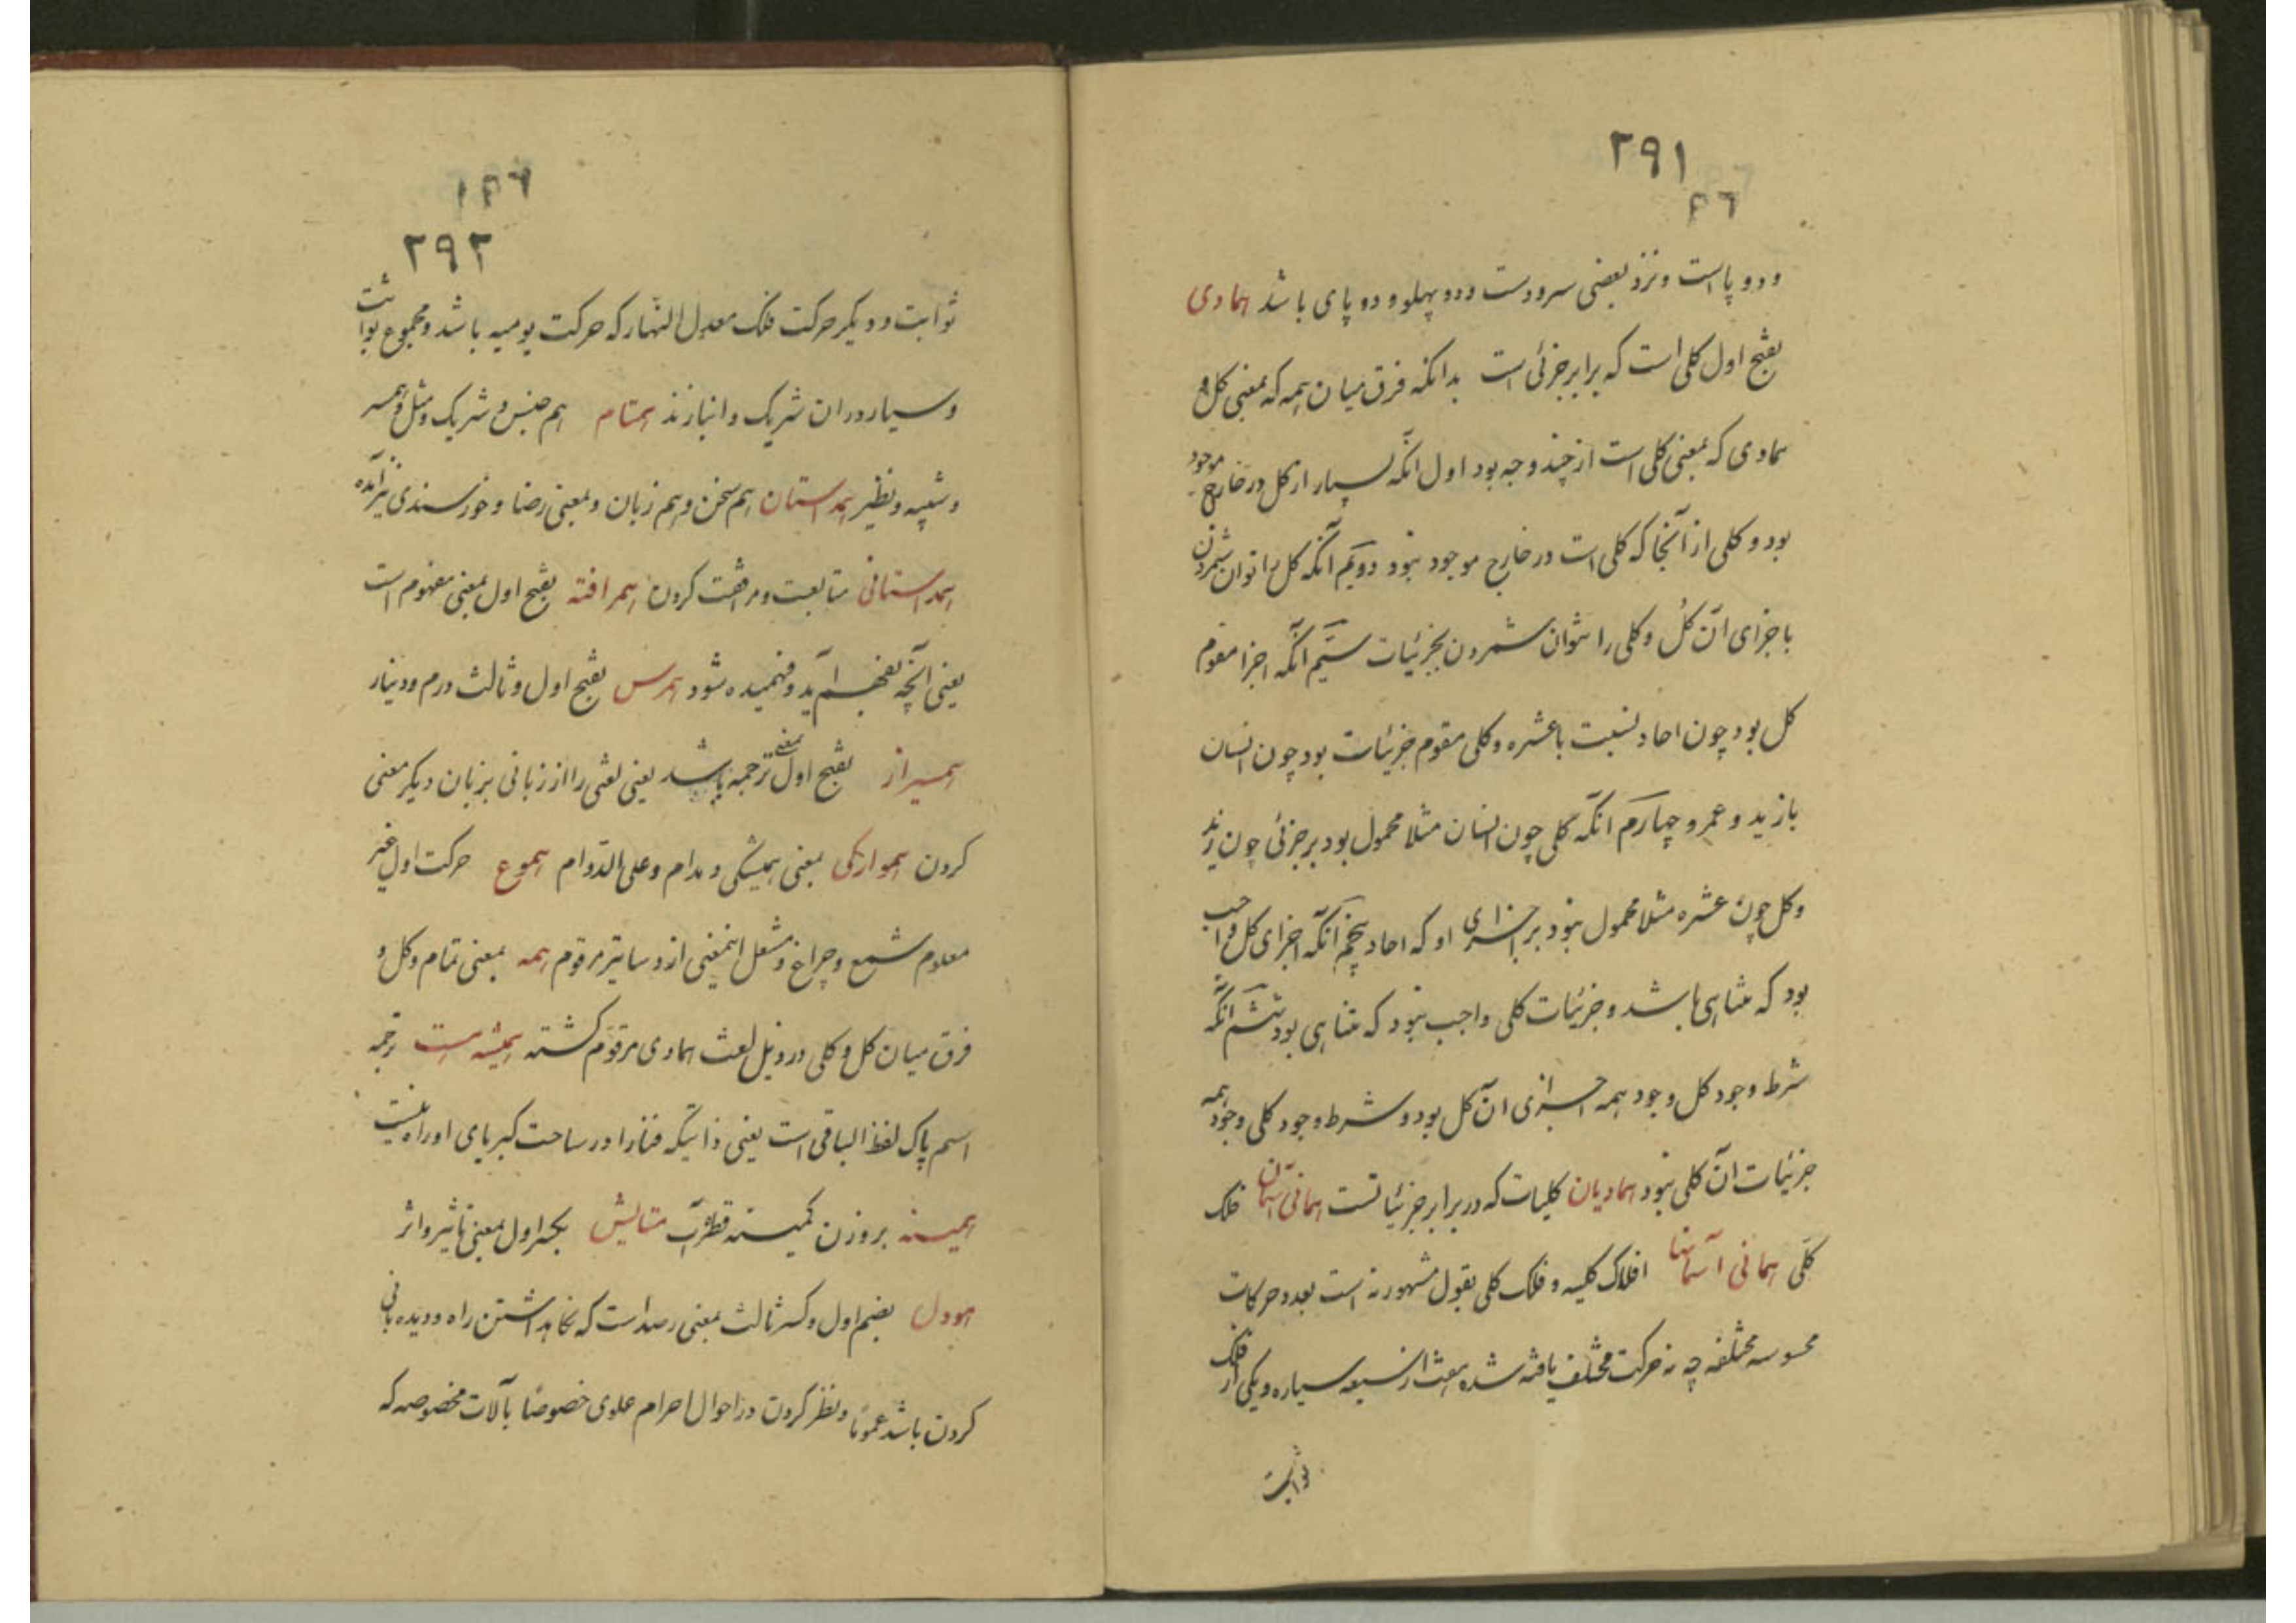 ۲۹۱
۵۶
و دو پا است و نزد بعضی سر و دست و دو پهلو و دو پای باشد همادی
بفتح اول کلی است که برابر جزئی است بدانکه فرق میان همه که بمعنی کل و
همادی که بمعنی کلی است از چند وجه بود اول آنکه بسیار از کل در خارج موجود
بود و کلی از آنجا که کلی است در خارج موجود نبود دویم آنکه کل را توان شمردن
باجزای آن کل و کلی را نتوان شمردن بجزئیات سیم آنکه اجزا مقوم
کل بود چون احاد نسبت با عشره و کلی مقوم جزئیات بود چون انسان
با زید و عمرو چهارم آنکه کلی چون انسان مثلا محمول بود بر جزئی چون زید
و کل چون عشره مثلا محمول نبود بر اجزای او که احاد پنجم آنکه اجزای کل واجب
بود که متناهی باشد و جزئیات کلی واجب نبود که متناهی بود ششم آنکه
شرط وجود کل وجود همه اجزای آن کل بود و شرط وجود کلی وجود همه
جزئیات آن کلی نبود همادیان کلیات که در برابر جزئیاتست همانی آسمان فلک
کلی همانی آسمانها افلاک کلیه و فلک کلی بقول مشهور نه است بعدد حرکات
محسوسه مختلفه چه نه حرکت مختلف یافته شده هفت از سبعه سیاره و یکی از فلک
ثوابت
۲۹۲
ثوابت و دیکر حرکت فلک معدل النهار که حرکت یومیه باشد و مجموع ثوابت
و سیار در ان شریک و انبازند همتام هم جنس و شریک و مثل و همسر
و شبیه و نظیر همداستان هم سخن و هم زبان و بمعنی رضا و خورسندی نیز آمده
همداستانی متابعت و مرافقت کردن همرافته بفتح اول بمعنی مفهوم است
یعنی آنچه بفهم آید و فهمیده شود همرس بفتح اول و ثالث درم و دینار
همیراز بفتح اول بمعنی ترجمه باشد یعنی لغتی را از زبانی بزبان دیکر معنی
کردن همواركی بمعنی همیشکی و مدام و علی الدوام هموع حرکت اول غیر
معلوم شمع و چراغ و مشعل اینمعنی از دساتیر مرقوم همه بمعنی تمام و کل و
فرق میان کل و کلی در ذیل لغت همادی مرقوم کشته همیشه هست ترجمه
اسم پاک لفظ الباقی است یعنی ذاتیکه فنا را در ساحت کبریای او راه نیست
همینه بر وزن کمینه قطره آب هنایش بکسر اول بمعنی تاثیر و اثر
هودل بضم اول و کسر ثالث بمعنی رصد است که نکاهداشتن راه و دیده بانی
کردن باشد عموما و نظر کردن در احوال اجرام علوی خصوصا بآلات مخصوصه که